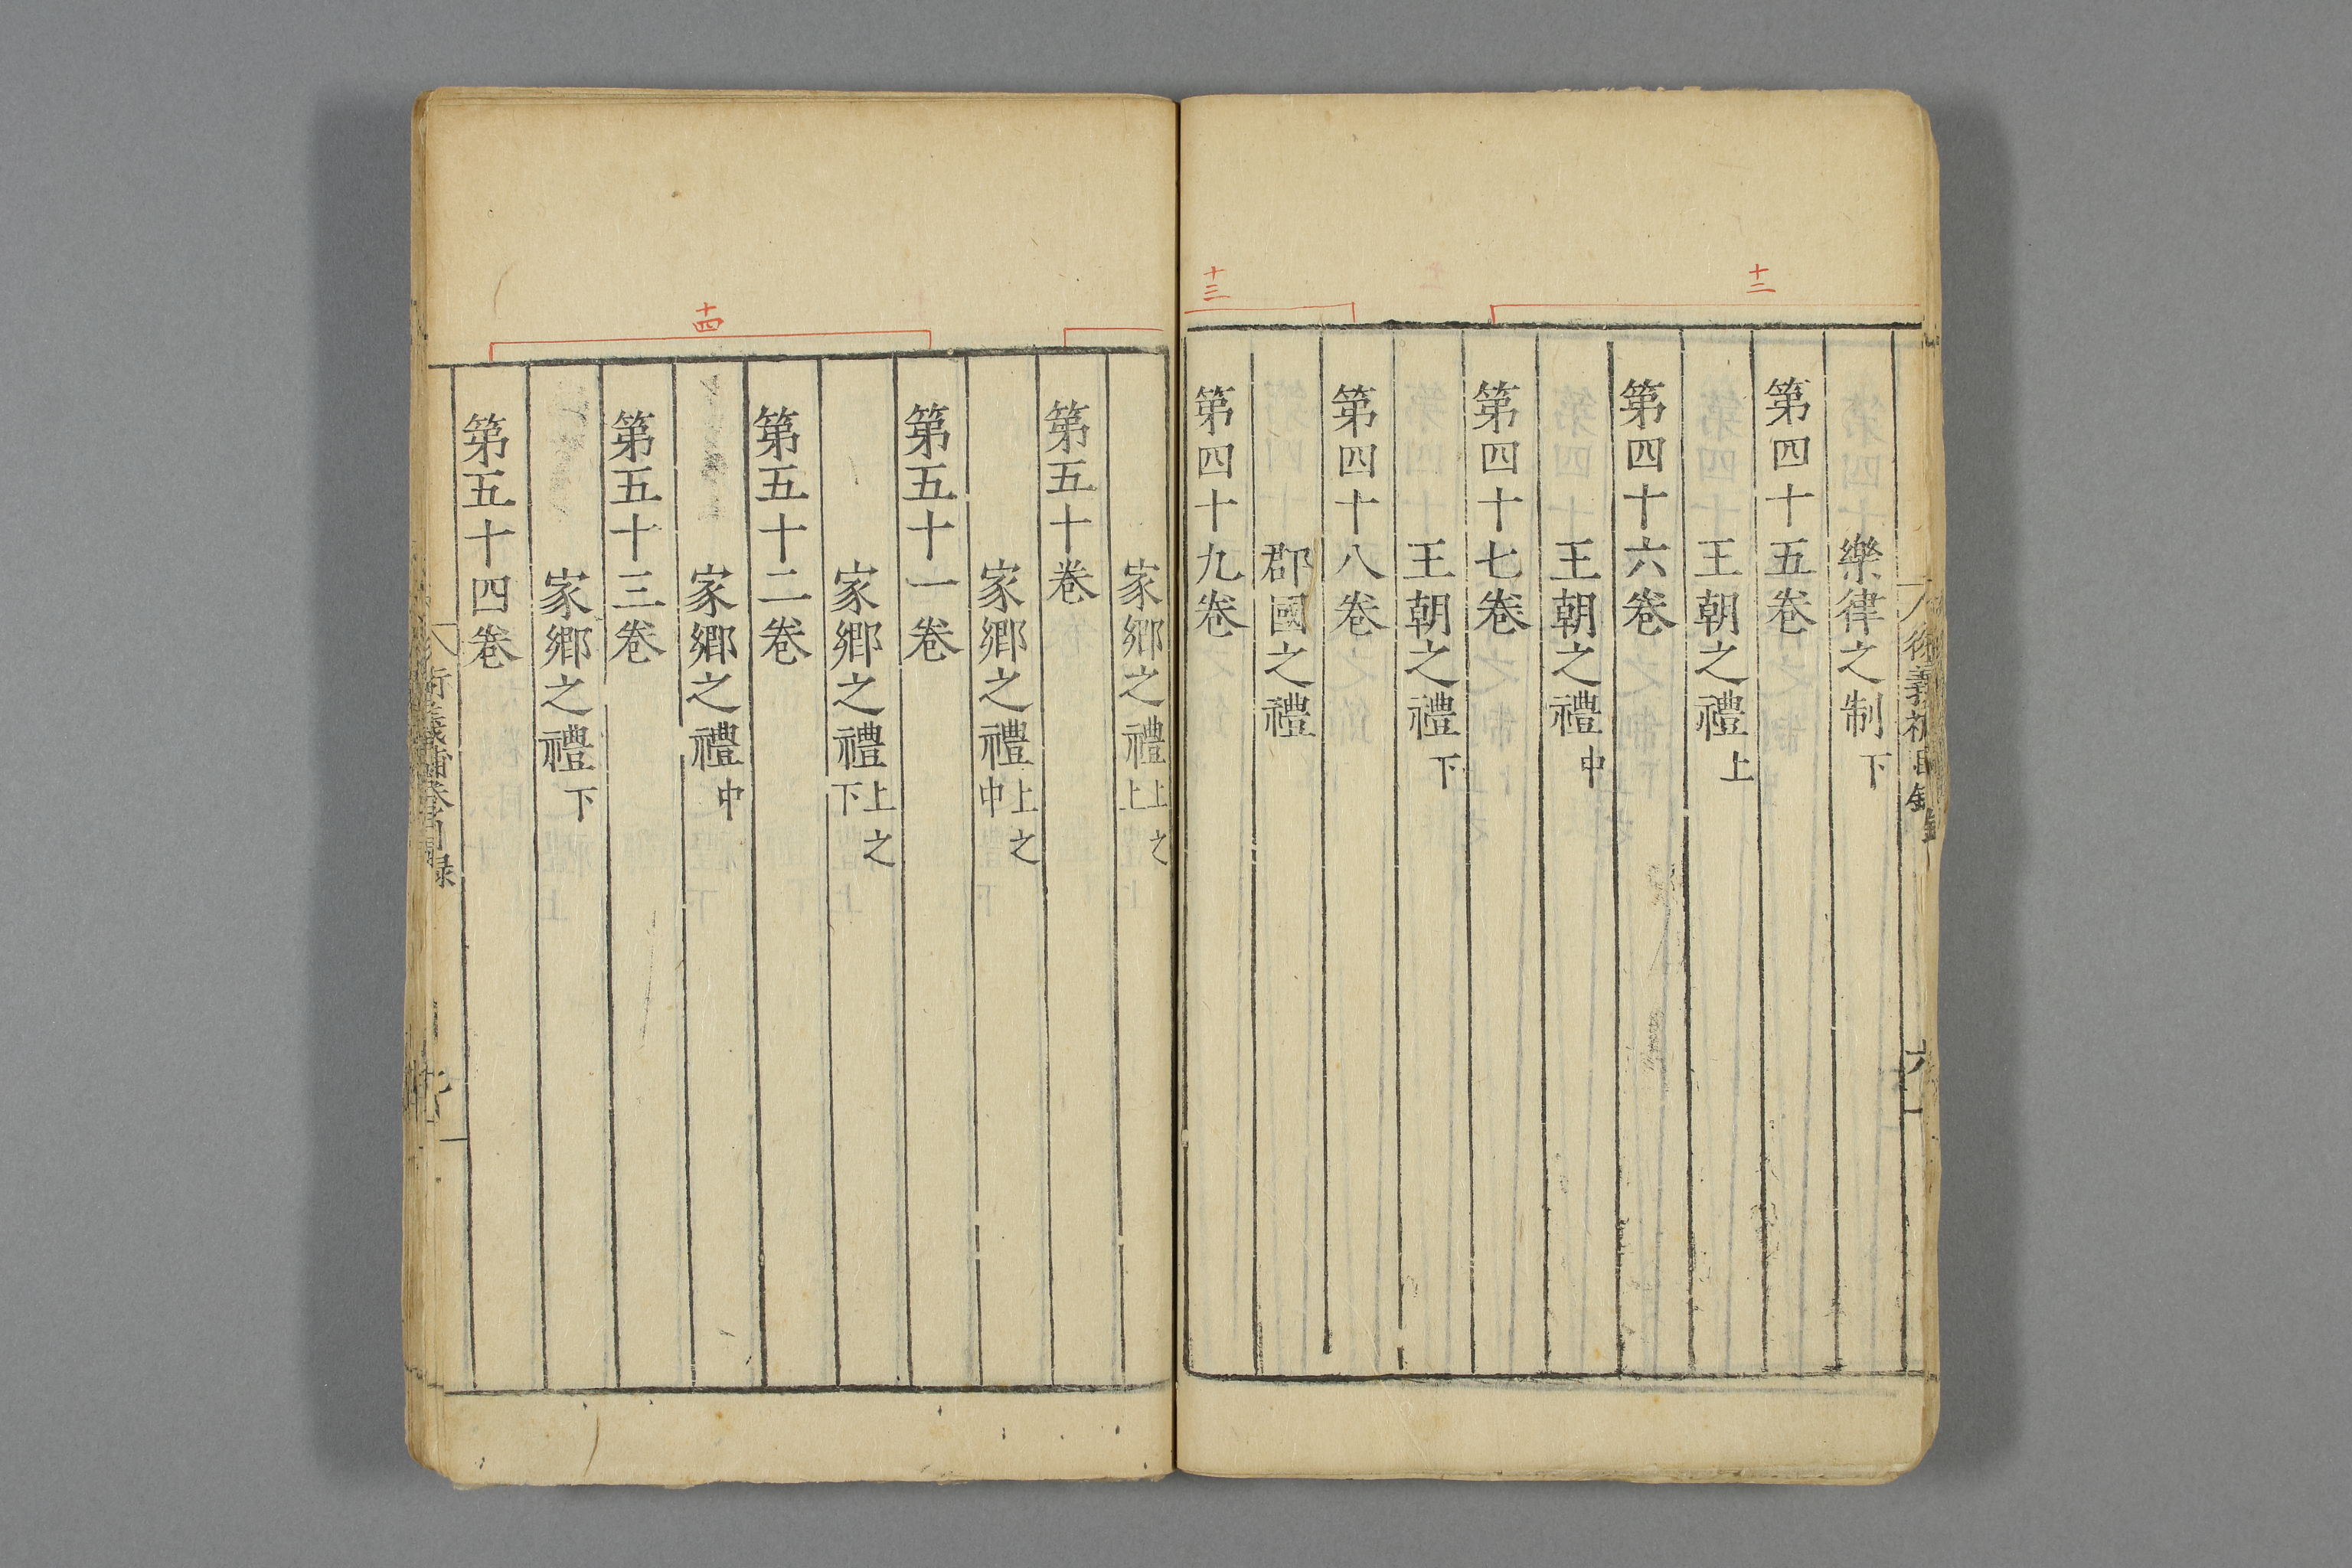 十二
十三
樂律之制下
第四十五卷
王朝之禮上
第四十六卷
王朝之禮中
第四十七卷
王朝之禮下
第四十八卷
郡國之禮
第四十九卷
十四
家鄉之禮上之上
第五十卷
家鄉之禮上之中
第五十一卷
家鄉之禮上之下
第五十二卷
家鄉之禮中
第五十三卷
家鄉之禮下
第五十四卷